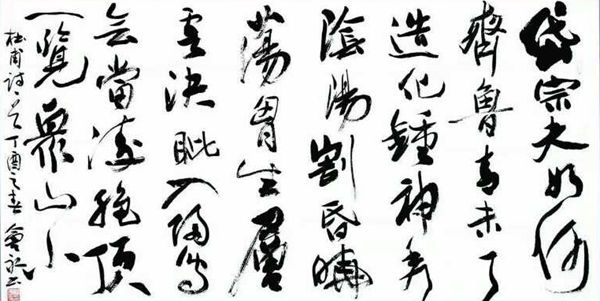 岱宗夫如何
齊魯青未了
造化鍾神秀
陰陽割昏曉
蕩胸生層
雲決眦入歸鳥
會當凌絕頂
一覽眾山小
杜甫詩 丁酉之春